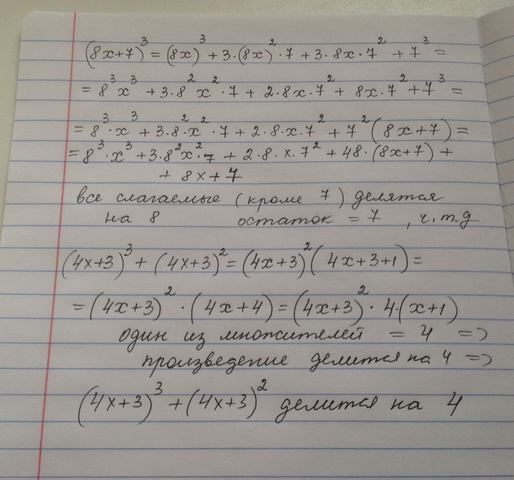 (8x+7)³ = (8x)³ + 3·(8x)²·7 + 3·8x·7² + 7³ =
= 8³x³ + 3·8²x²·7 + 2·8x·7² + 8x·7² + 7³ =
= 8³·x³ + 3·8²·x²·7 + 2·8·x·7² + 7²(8x+7) =
= 8³·x³ + 3·8²x²·7 + 2·8·x·7² + 48·(8x+7) +
+ 8x+7
все слагаемые (кроме 7) делятся
на 8 остаток = 7, ч.т.д
(4x+3)³ + (4x+3)² = (4x+3)²(4x+3+1) =
= (4x+3)²·(4x+4) = (4x+3)²·4·(x+1)
один из множителей = 4 =>
произведение делится на 4 =>
(4x+3)³ + (4x+3)² делится на 4